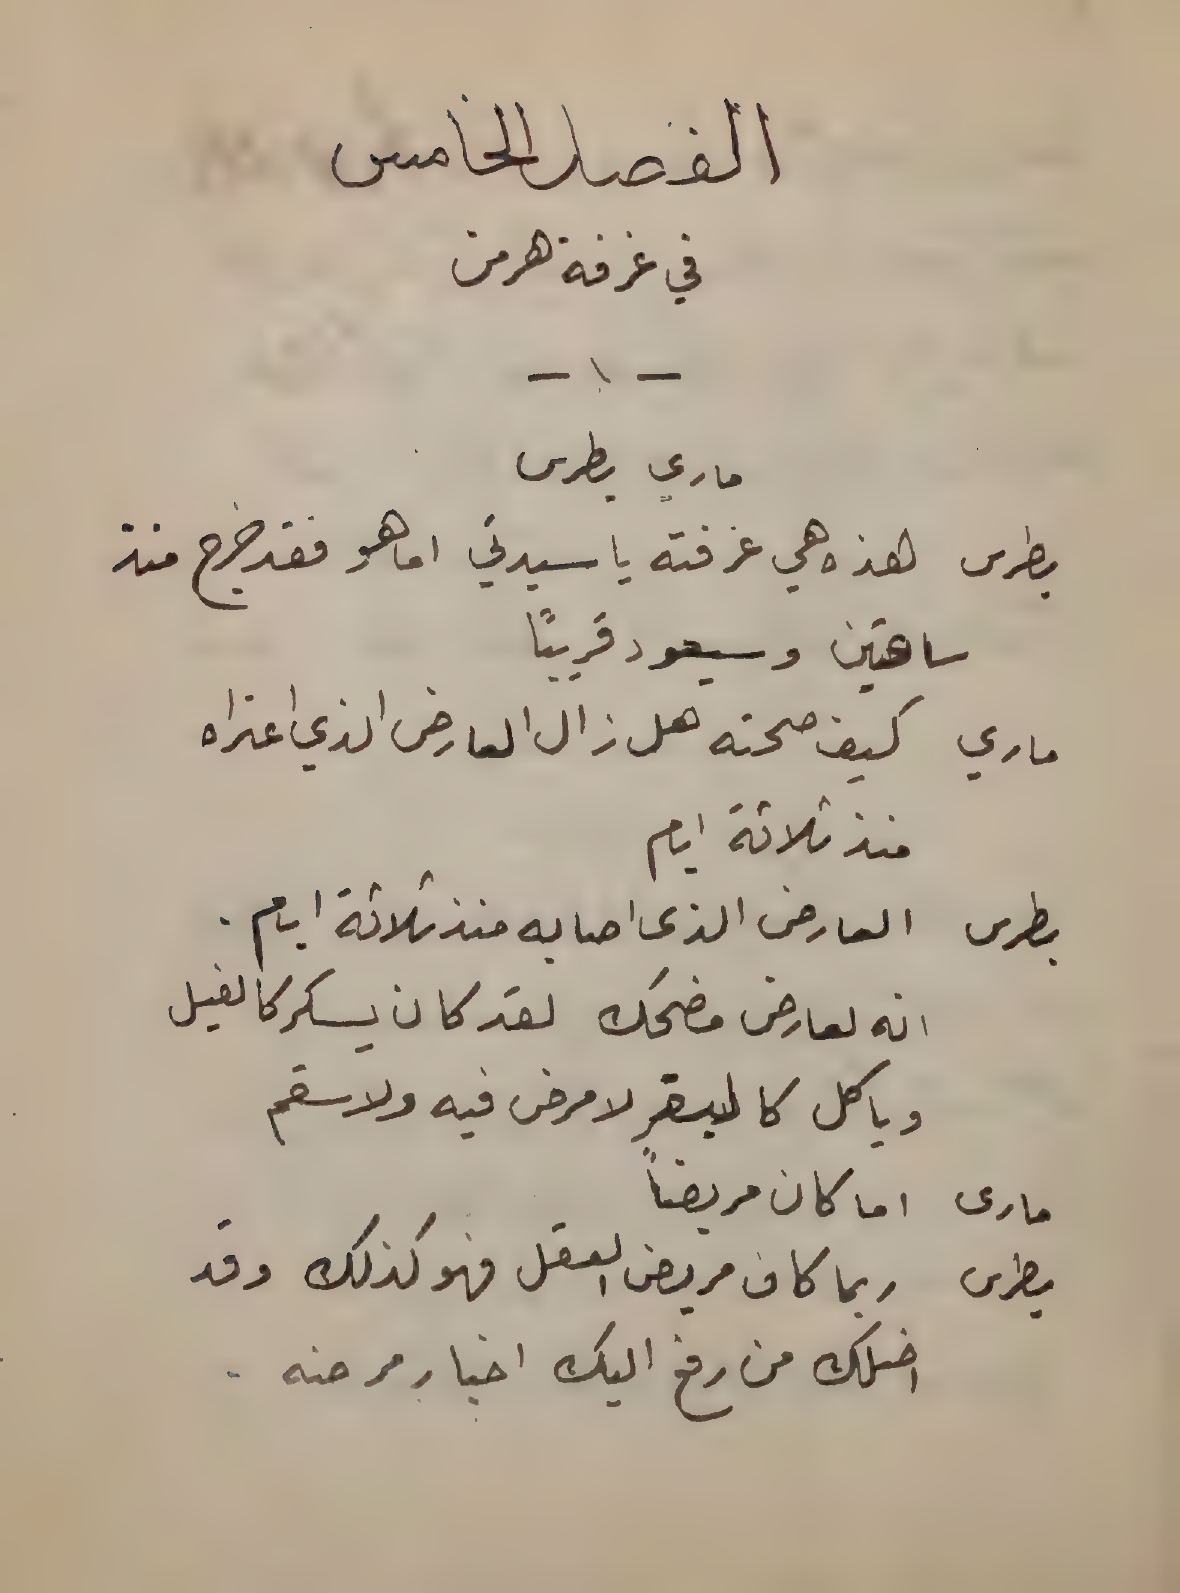 الفصل الخامس
في غرفة هرمن
- ١ -
ماري بطرس
بطرس هذه هي غرفته يا سيدتي اما هو فقد خرج منذ
ساعتين وسيعود قريبًا
ماري كيف صحته هل زال العارض الذي اعتراه
منذ ثلاثة ايام
بطرس العارض الذى اصابه منذ ثلاثة ايام .
انه لعارض مضحك لقد كان يسكر كالفيل
وياكل كالبقر لا مرض فيه ولا سقم
مارى اما كان مريضاً
بطرس ربما كان مريض العقل فهو كذلك وقد
اضلك من رفع اليك اخبار مرضه .